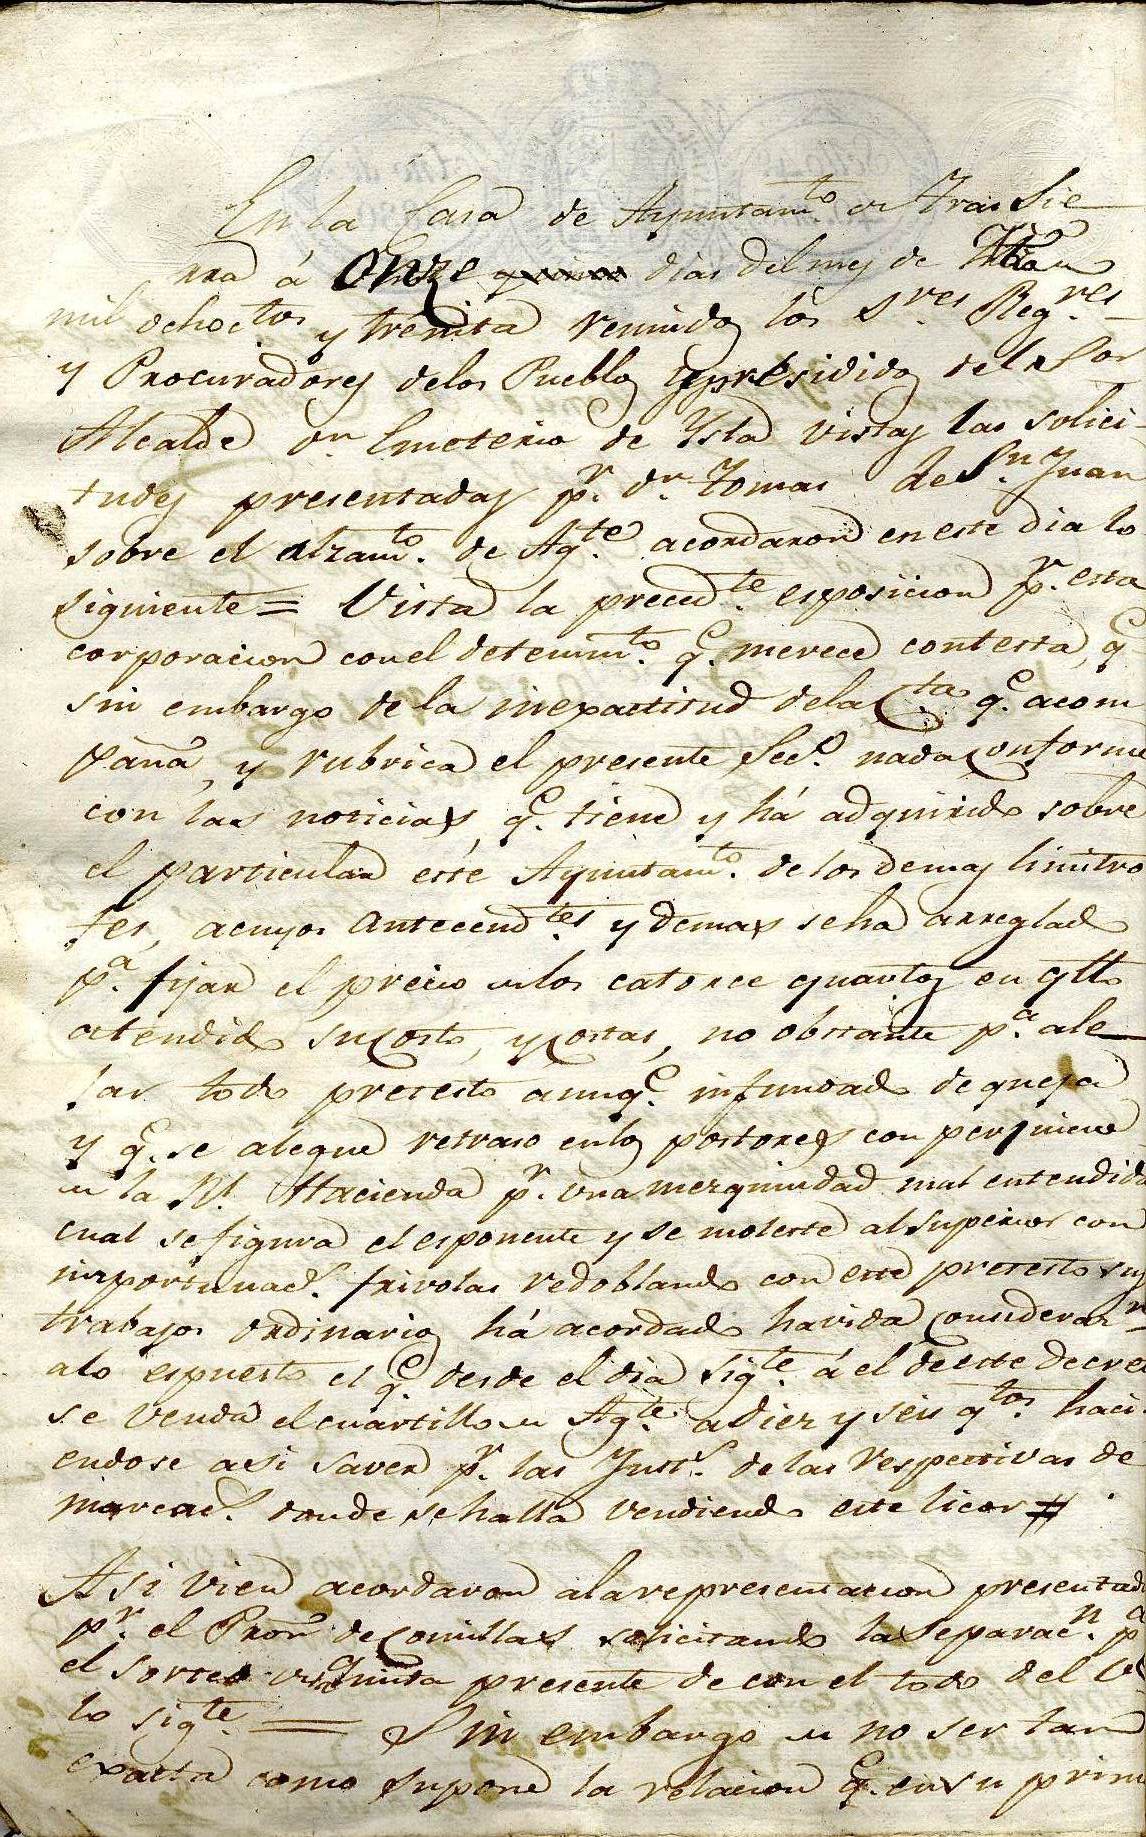 En la Casa de Ayuntam.to de Tras Sie
rra á Onze dias del mes de
mil ochoc.tos y treinta reunidos los S.res Reg.res
y Procuradores de los Pueblos y presididos del Sor
Alcalde D.n Emeterio de Ysla vistas las solici-
tudes presentadas p.r d.n Tomas de S.n Juan
sobre el alzam.to de Ag.te acordaron en este dia lo
siguiente = Vista la preced.te esposicion p.r esta
corporacion con el detenim.to q.e merece contesta, q.e
sin embargo de la inexactitud de la C.ta q.e acom-
paña, y rubrica el presente Sec.o nada conforme
con las noticias q.e tiene y há adquirido sobre
el particular este Ayuntam.to de los demas limitro
fes, acuyos antecend.tes y demas se ha arreglado
p.a fijar el precio de los catorce quartos en q.llo
atendido su costo, y costas, no obstante p.a ale
jar todo pretesto aunq.e infundado de queja
y q.e se alegue retraso en los postores con perjuicio
de la R.l Hacienda p.r una mezquindad mal entendida
cual se figura el esponente y se moleste al superior con
inportunac.s frivolas redoblando con este pretesto sus
trabajos ordinarios há acordado havida considerac.n
alo espuesto el q.e desde el dia sig.te á el de este decre
se venda el cuartillo de Ag.te a diez y seis q.tos haci-
endose asi saver p.r las Just.s de las respectivas de
marcac.s donde se halla vendiendo este licor #
Asi vien acordaron ala representacion presentada
p.r el Pror de Comillas solicitando la separac.n p.a
el sorteo de Quinta presente de con el todo del Va
lo sig.te = Sin embargo de no ser tan
exacta como supone la relacion q.e en su prim